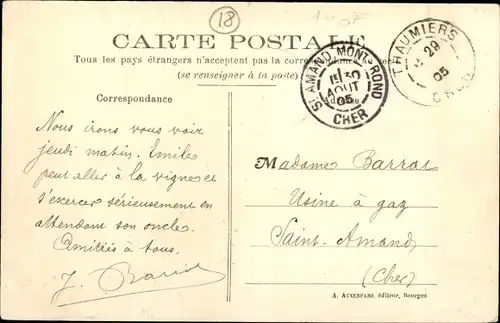 18
CARTE POSTALE
Tous les pays étrangers n'acceptent pas la correspondance au
(se renseigner à la poste)
THAUMIERS
29
05
CHER
St AMAND MONT-ROND
15 30
AOUT
05
CHER
Correspondance
Nous irons vous voir
jeudi matin. Emile
peut aller à la vigne et
s'exercer sérieusement en
attendant son oncle.
Amitiés à tous.
Madame Barrat
Usine à gaz
Saint-Amand
(Cher)
A. AUXENFANS, éditeur, Bourges